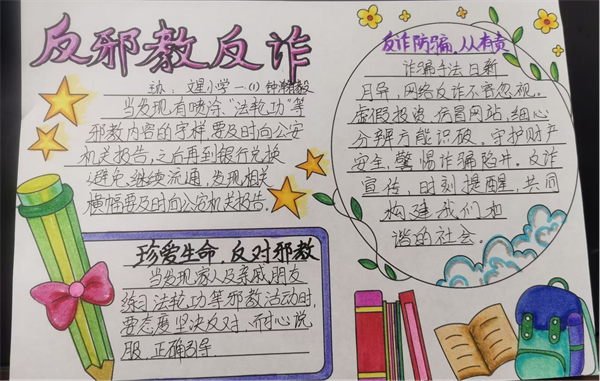 反邪教反诈
主办：文星小学一(1) 钟
当发现有喷涂、“法轮功”等
邪教内容的字样要及时向公安
机关报告，之后再到银行兑换
避免继续流通，发现相关
横幅要及时向公安机关报告。
珍爱生命，反对邪教
当发现家人及亲戚朋友
练习法轮功等邪教活动时，
要态度坚决反对，耐心说
服，正确引导.
反诈防骗，人人有责
诈骗手法日新
月异，网络反诈不容忽视。
虚假投资，仿冒网站，细心
分辨方能识破。守护财产
安全，警惕诈骗陷井。反诈
宣传，时刻提醒，共同
构建我们和
谐的社会。